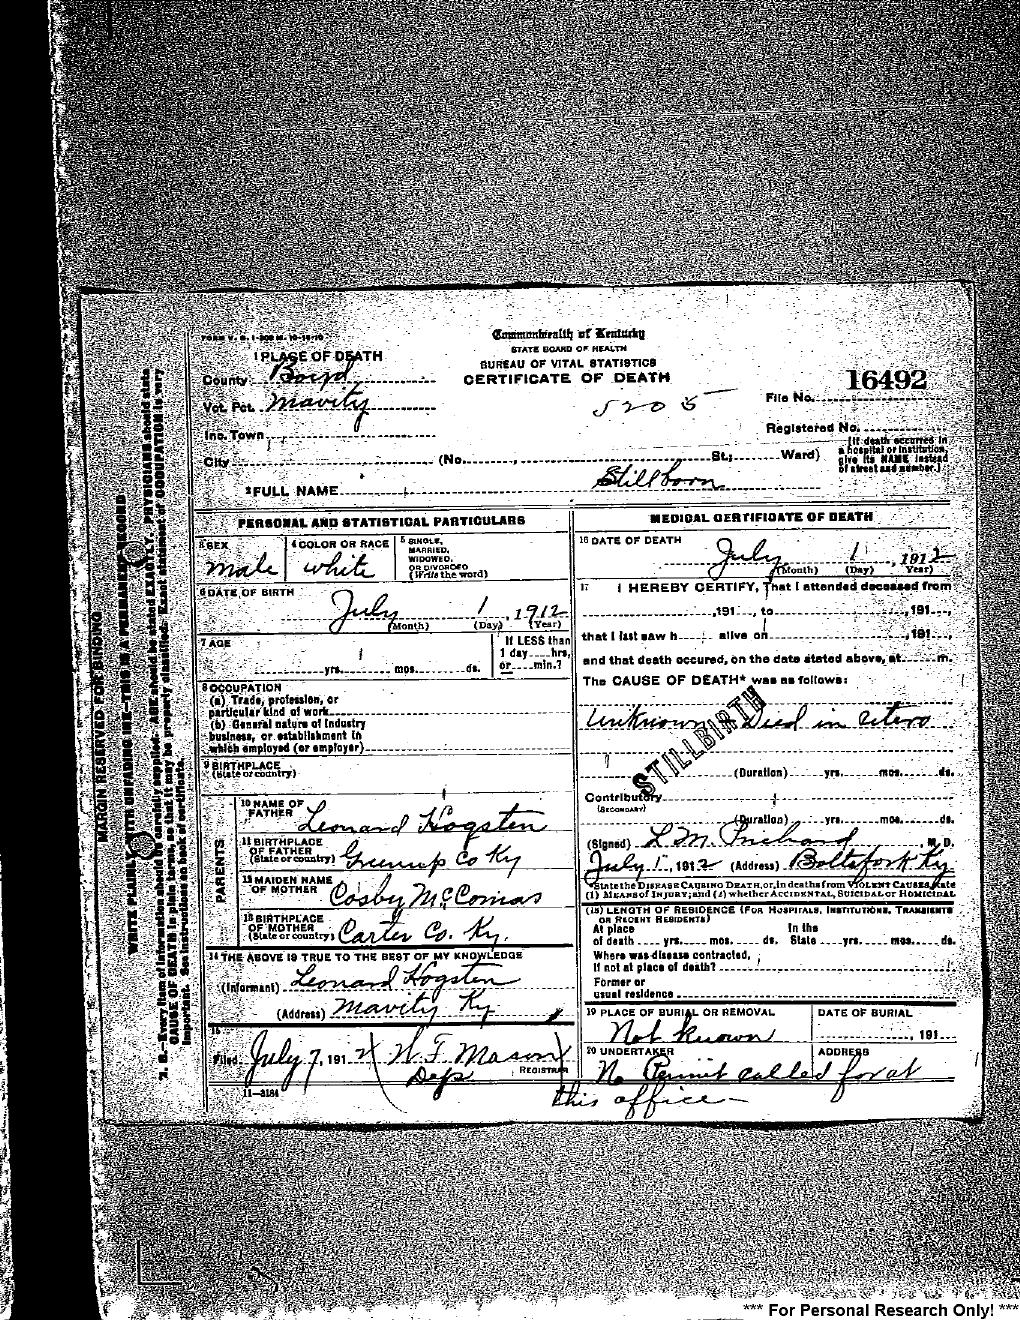 FORM V. S. 1-200 M. 10-19-10
Commonwealth of Kentucky
STATE BOARD OF HEALTH
BUREAU OF VITAL STATISTICS
CERTIFICATE OF DEATH
1 PLACE OF DEATH
County Boyd
Vot. Pct. Mavity
Inc. Town
City (No. , St.; Ward)
5205
16492
File No.
Registered No.
[If death occurred in
a hospital or institution,
give its NAME instead
of street and number.]
2 FULL NAME Stillborn
PERSONAL AND STATISTICAL PARTICULARS
3 SEX
male
4 COLOR OR RACE
white
5 SINGLE,
MARRIED,
WIDOWED,
OR DIVORCED
(Write the word)
6 DATE OF BIRTH
July 1, 1912
(Month) (Day) (Year)
7 AGE
yrs. mos. ds.
If LESS than
1 day hrs,
or min.?
8 OCCUPATION
(a) Trade, profession, or
particular kind of work
(b) General nature of industry
business, or establishment in
which employed (or employer)
9 BIRTHPLACE
(State or country)
PARENTS
10 NAME OF
FATHER Leonard Hogsten
11 BIRTHPLACE
OF FATHER
(State or country) Greenup Co Ky
12 MAIDEN NAME
OF MOTHER Cosby McComas
13 BIRTHPLACE
OF MOTHER
(State or country) Carter Co. Ky.
14 THE ABOVE IS TRUE TO THE BEST OF MY KNOWLEDGE
(Informant) Leonard Hogsten
(Address) Mavity Ky
15
Filed July 7, 1912 W. T. Mason
Dep REGISTRAR
11-3184
MEDICAL CERTIFICATE OF DEATH
16 DATE OF DEATH
July 1, 1912
(Month) (Day) (Year)
17 I HEREBY CERTIFY, That I attended deceased from
, 191 , to , 191 ,
that I last saw h alive on , 191 ,
and that death occured, on the date stated above, at m.
The CAUSE OF DEATH* was as follows:
Unknown Died in utero
STILLBIRTH
(Duration) yrs. mos. ds.
Contributory
(SECONDARY)
(Duration) yrs. mos. ds.
(Signed) L M. Prichard, M. D.
July 1, 1912 (Address) Boltsfork Ky
*State the DISEASE CAUSING DEATH, or, in deaths from VIOLENT CAUSES, state
(1) MEANS OF INJURY; and (2) whether ACCIDENTAL, SUICIDAL or HOMICIDAL
(18) LENGTH OF RESIDENCE (FOR HOSPITALS, INSTITUTIONS, TRANSIENTS
OR RECENT RESIDENTS)
At place In the
of death yrs. mos. ds. State yrs. mos. ds.
Where was disease contracted,
If not at place of death?
Former or
usual residence
19 PLACE OF BURIAL OR REMOVAL
Not known
DATE OF BURIAL
, 191
20 UNDERTAKER
ADDRESS
No Permit called for at
this office
MARGIN RESERVED FOR BINDING
WRITE PLAINLY WITH UNFADING INK—THIS IS A PERMANENT RECORD
N. B.—Every item of information should be carefully supplied. AGE should be stated EXACTLY. PHYSICIANS should state
CAUSE OF DEATH in plain terms, so that it may be properly classified. Exact statement of OCCUPATION is very
important. See instructions on back of certificate.
*** For Personal Research Only! ***